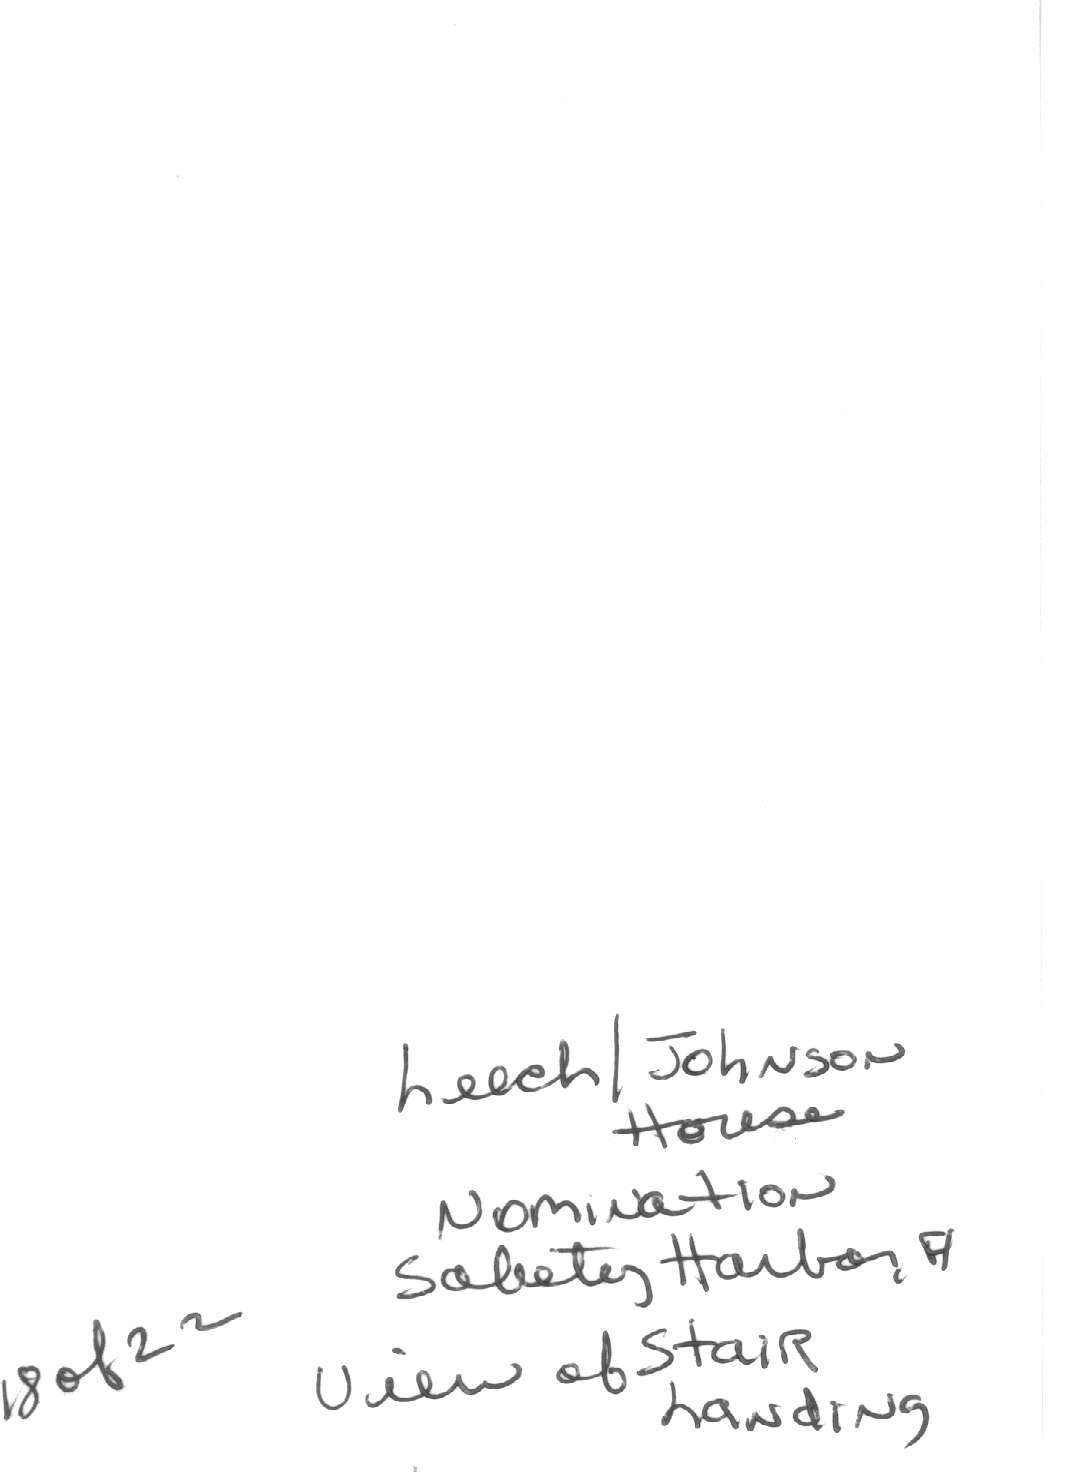 Leech/Johnson
House
Nomination
Safety Harbor, Fl
18 of 22
View of Stair
Landing